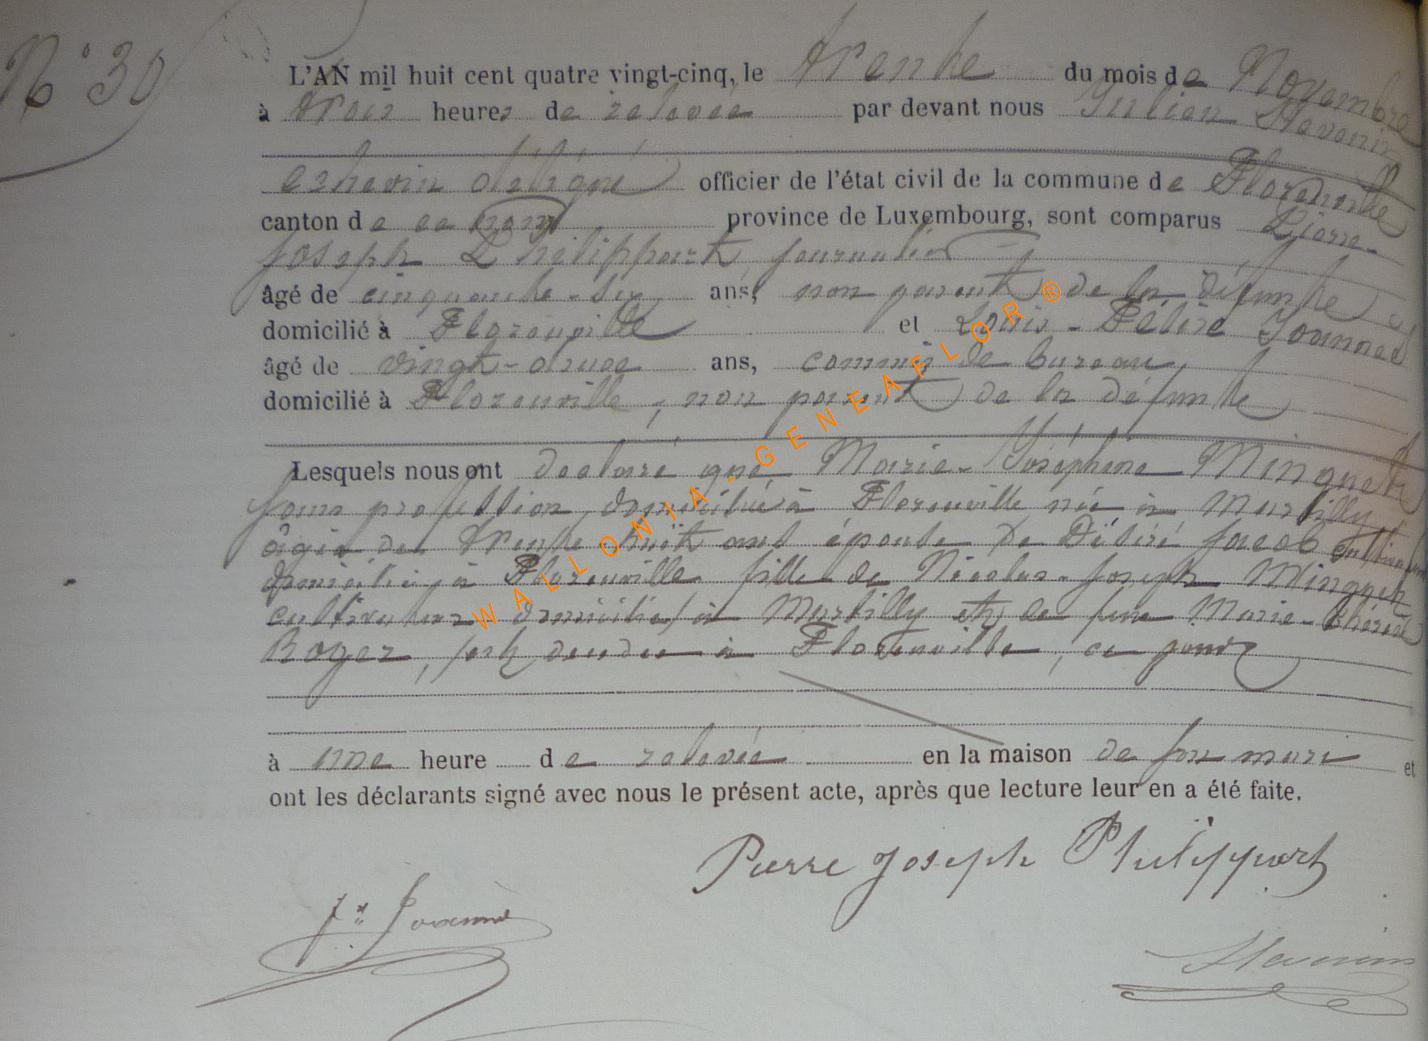 N° 30
L'AN mil huit cent quatre vingt-cinq, le trente du mois de Novembre
à trois heures de relevée par devant nous Julien
échevin délégué officier de l'état civil de la commune de Florenville
canton de ce nom province de Luxembourg, sont comparus Pierre-
Joseph Philippart journalier
âgé de cinquante-six ans, non parent de la défunte
domicilié à Florenville et Louis-Félix
âgé de vingt-deux ans, commis de bureau,
domicilié à Florenville, non parent de la défunte
Lesquels nous ont déclaré que Marie-Joséphine Minguet
sans profession, domiciliée à Florenville née à Martilly
âgée de trente huit ans épouse de Désiré Jacob cultivateur
domicilié à Florenville fille de Nicolas-Joseph Minguet
cultivateur domicilié à Martilly et de feue Marie-Thérèse
Roger, est décédée à Florenville, ce jour
à une heure de relevée en la maison de son mari et
ont les déclarants signé avec nous le présent acte, après que lecture leur en a été faite.
Pierre Joseph Philippart
WALLONIA-GENEAFLOR ®